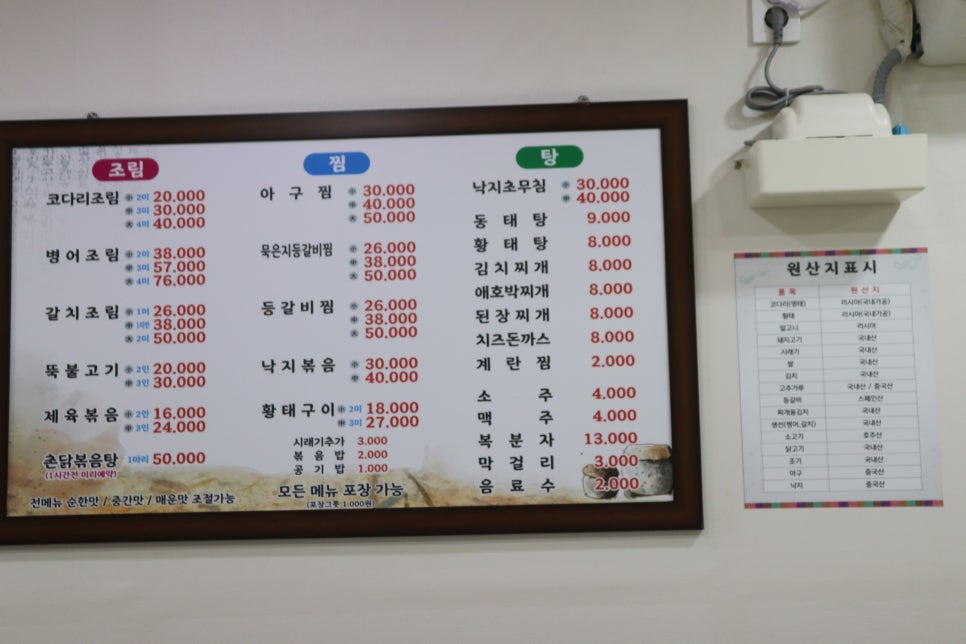 조림
코다리조림 小 2미 20.000
中 3미 30.000
大 4미 40.000
병어조림 小 2미 38.000
中 3미 57.000
大 4미 76.000
갈치조림 小 1미 26.000
中 1미반 38.000
大 2미 50.000
뚝불고기 小 2인 20.000
中 3인 30.000
제육볶음 小 2인 16.000
中 3인 24.000
촌닭볶음탕 1마리 50.000
(1시간전 미리예약)
전메뉴 순한맛 / 중간맛 / 매운맛 조절가능
찜
아구찜 小 30.000
中 40.000
大 50.000
묵은지등갈비찜 小 26.000
中 38.000
大 50.000
등갈비찜 小 26.000
中 38.000
大 50.000
낙지볶음 小 30.000
中 40.000
황태구이 小 2미 18.000
中 3미 27.000
시래기추가 3.000
볶음밥 2.000
공기밥 1.000
모든 메뉴 포장 가능
(포장그릇 1.000원)
탕
낙지초무침 小 30.000
中 40.000
동태탕 9.000
황태탕 8.000
김치찌개 8.000
애호박찌개 8.000
된장찌개 8.000
치즈돈까스 8.000
계란찜 2.000
소주 4.000
맥주 4.000
복분자 13.000
막걸리 3,000
음료수 2.000
원산지표시
품목 원산지
코다리(명태) 러시아(국내가공)
황태 러시아(국내가공)
알고니 러시아
돼지고기 국내산
시래기 국내산
쌀 국내산
김치 국내산
고추가루 국내산 / 중국산
등갈비 스페인산
찌개용김치 국내산
생선(병어,갈치) 국내산
소고기 호주산
닭고기 국내산
조기 국내산
아구 중국산
낙지 중국산